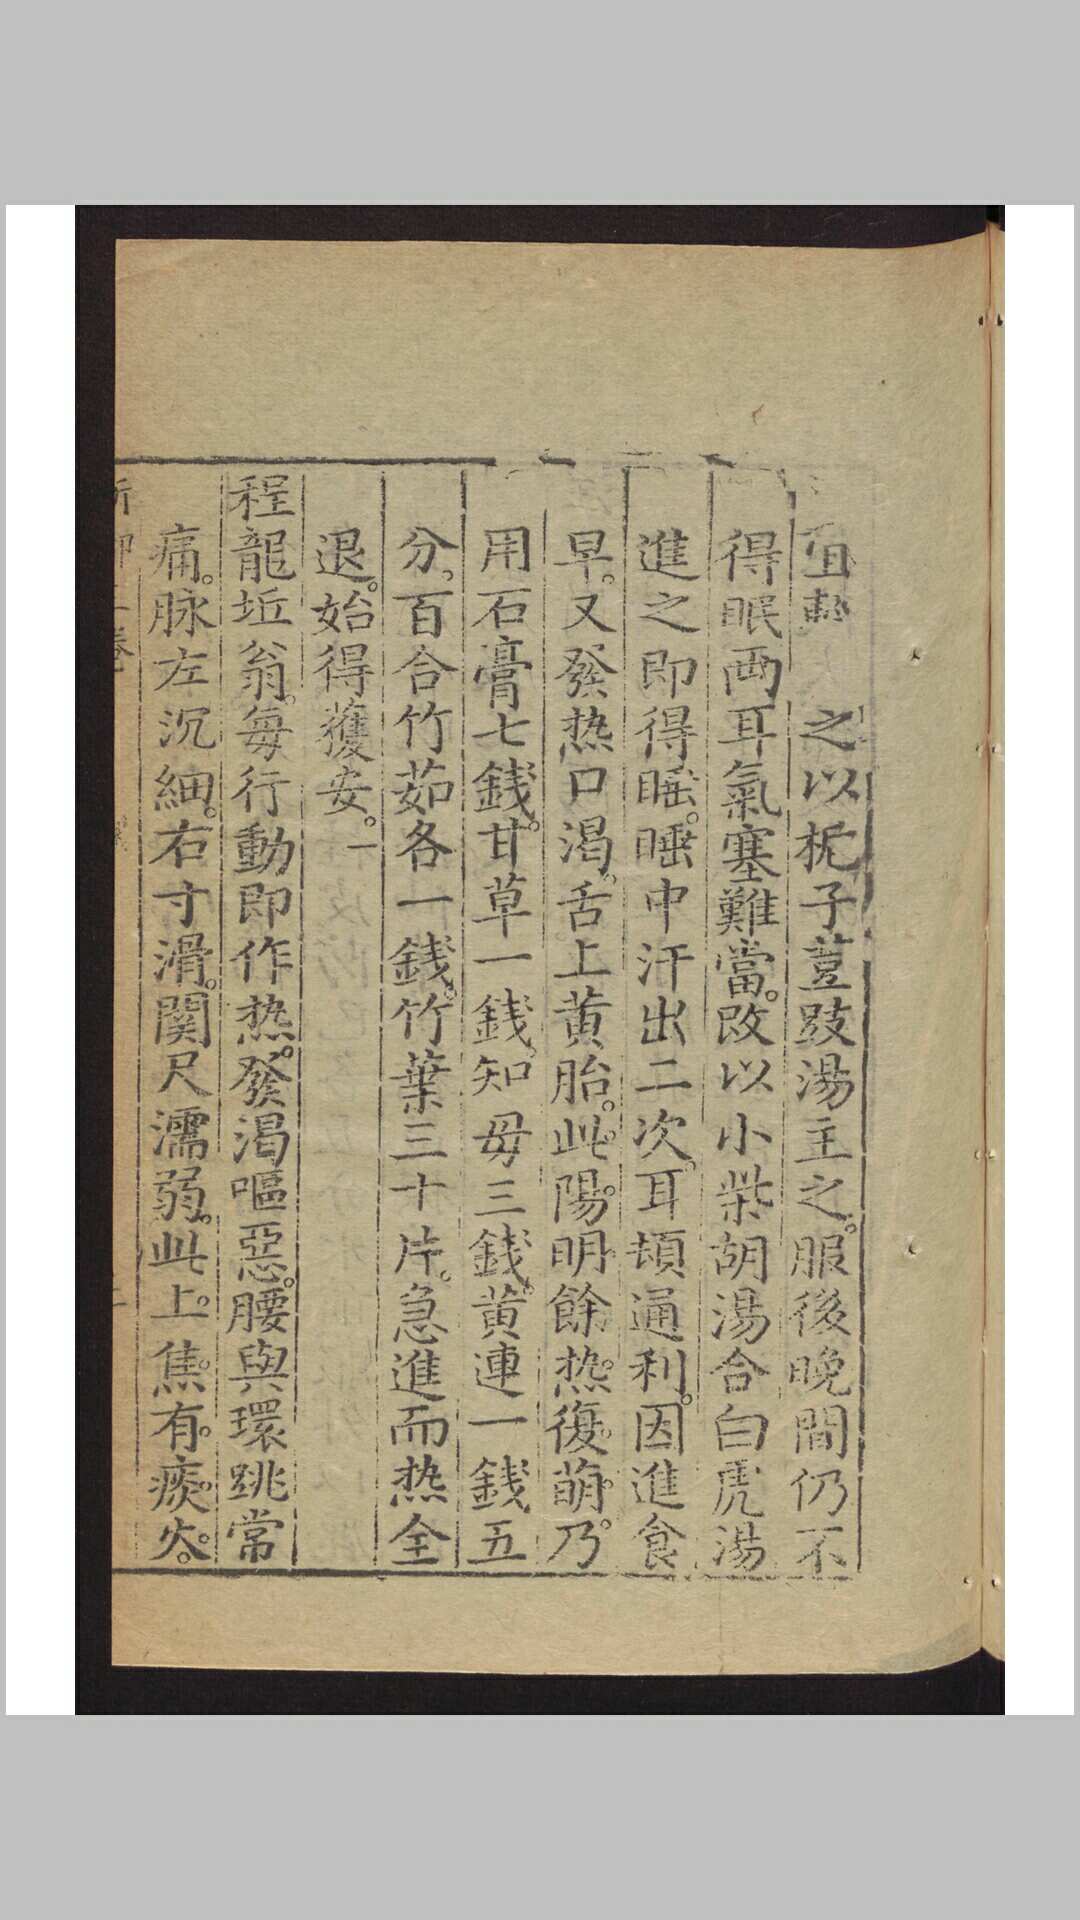 宜 之以栀子荳豉湯主之。服後晚間仍不
得眠兩耳氣塞難當。改以小柴胡湯合白虎湯
進之即得睡。睡中汗出二次。耳頓通利。因進食
早。又發热口渴。舌上黄胎。此陽明餘热復萌。乃
用石膏七錢。甘草一錢。知毋三錢。黄連一錢五
分。百合竹茹各一錢。竹葉三十片。急進而热全
退。始得獲安。
程龍坵翁。每行動即作热。發渴嘔惡。腰與環跳常
痛。脉左沉細。右寸滑。関尺濡弱。此上焦有痰火。
卷